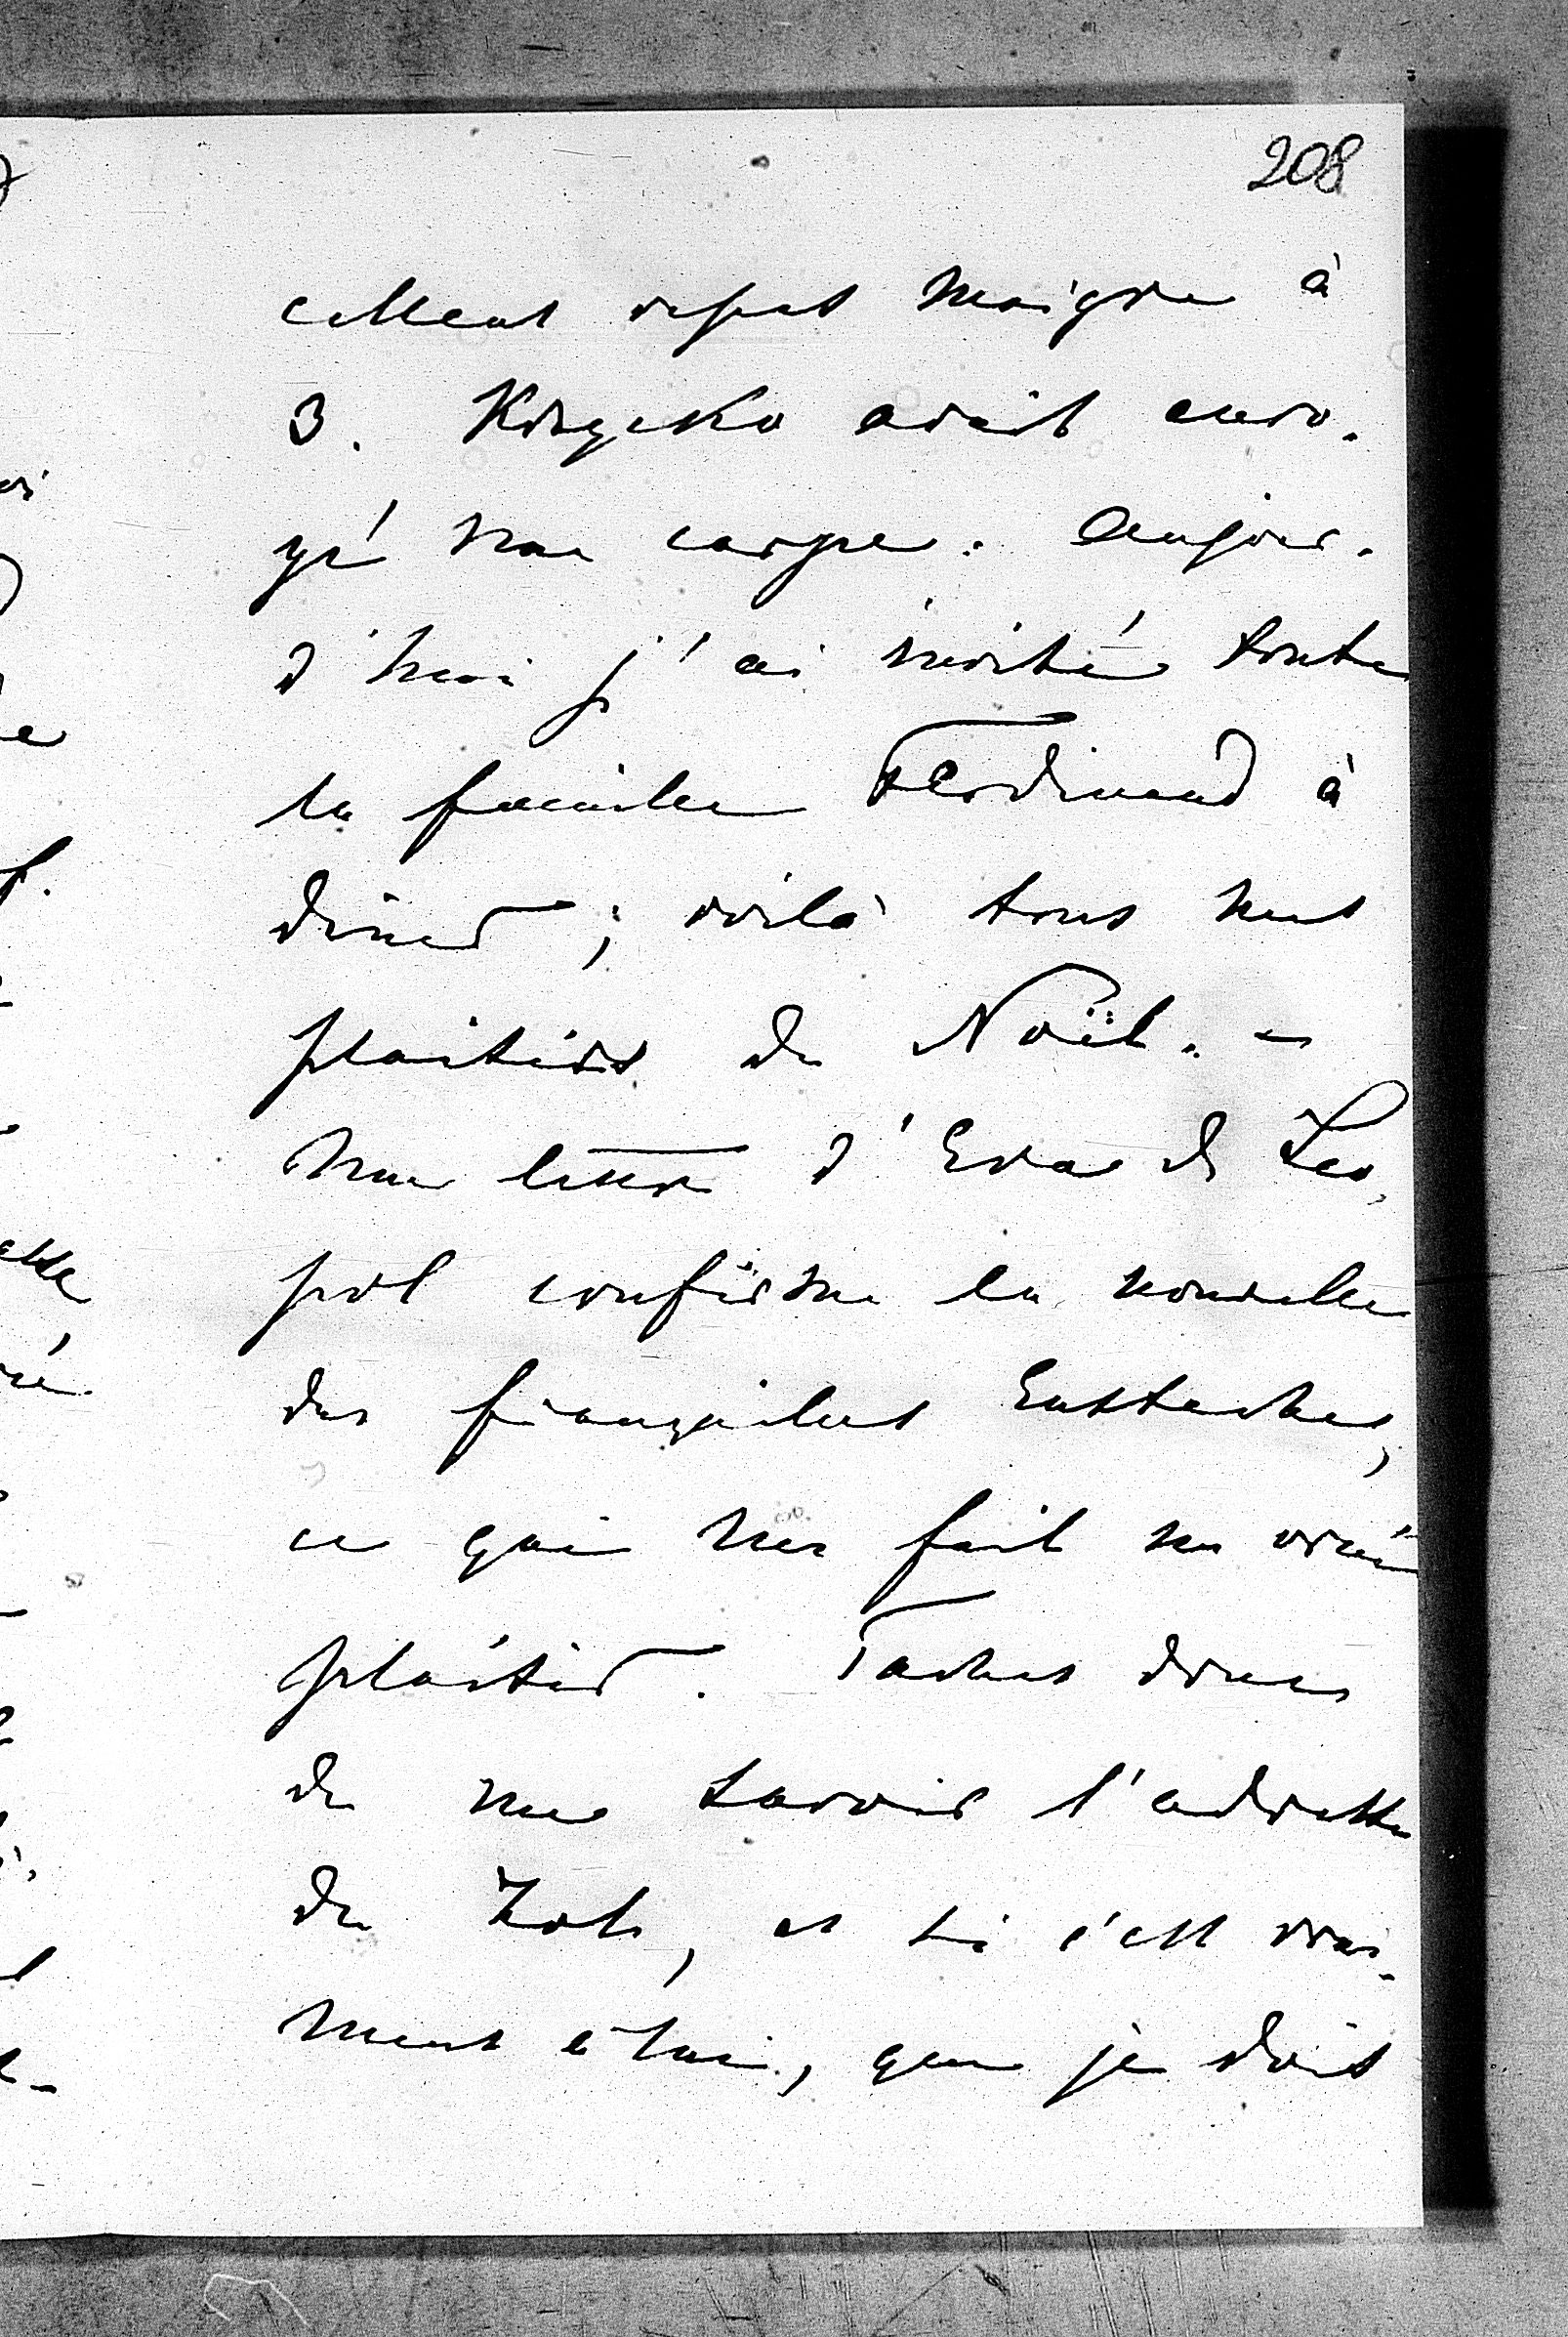 208
cellent repas maigre à
3. Krzycko avait envo-
yé une carpe. Aujour-
d'hui j'ai invité toute
la famille Ferdinand à
dîner; voilà tous nos
plaisirs de Noël. –
Une lettre d'Eva de Léo-
pol confirme la nouvelle
des fiançailles Eustache,
ce qui me fait un vrai
plaisir. Taches donc
de me savoir l'adresse
de, et si c'est vrai-
ment à lui, que je dois